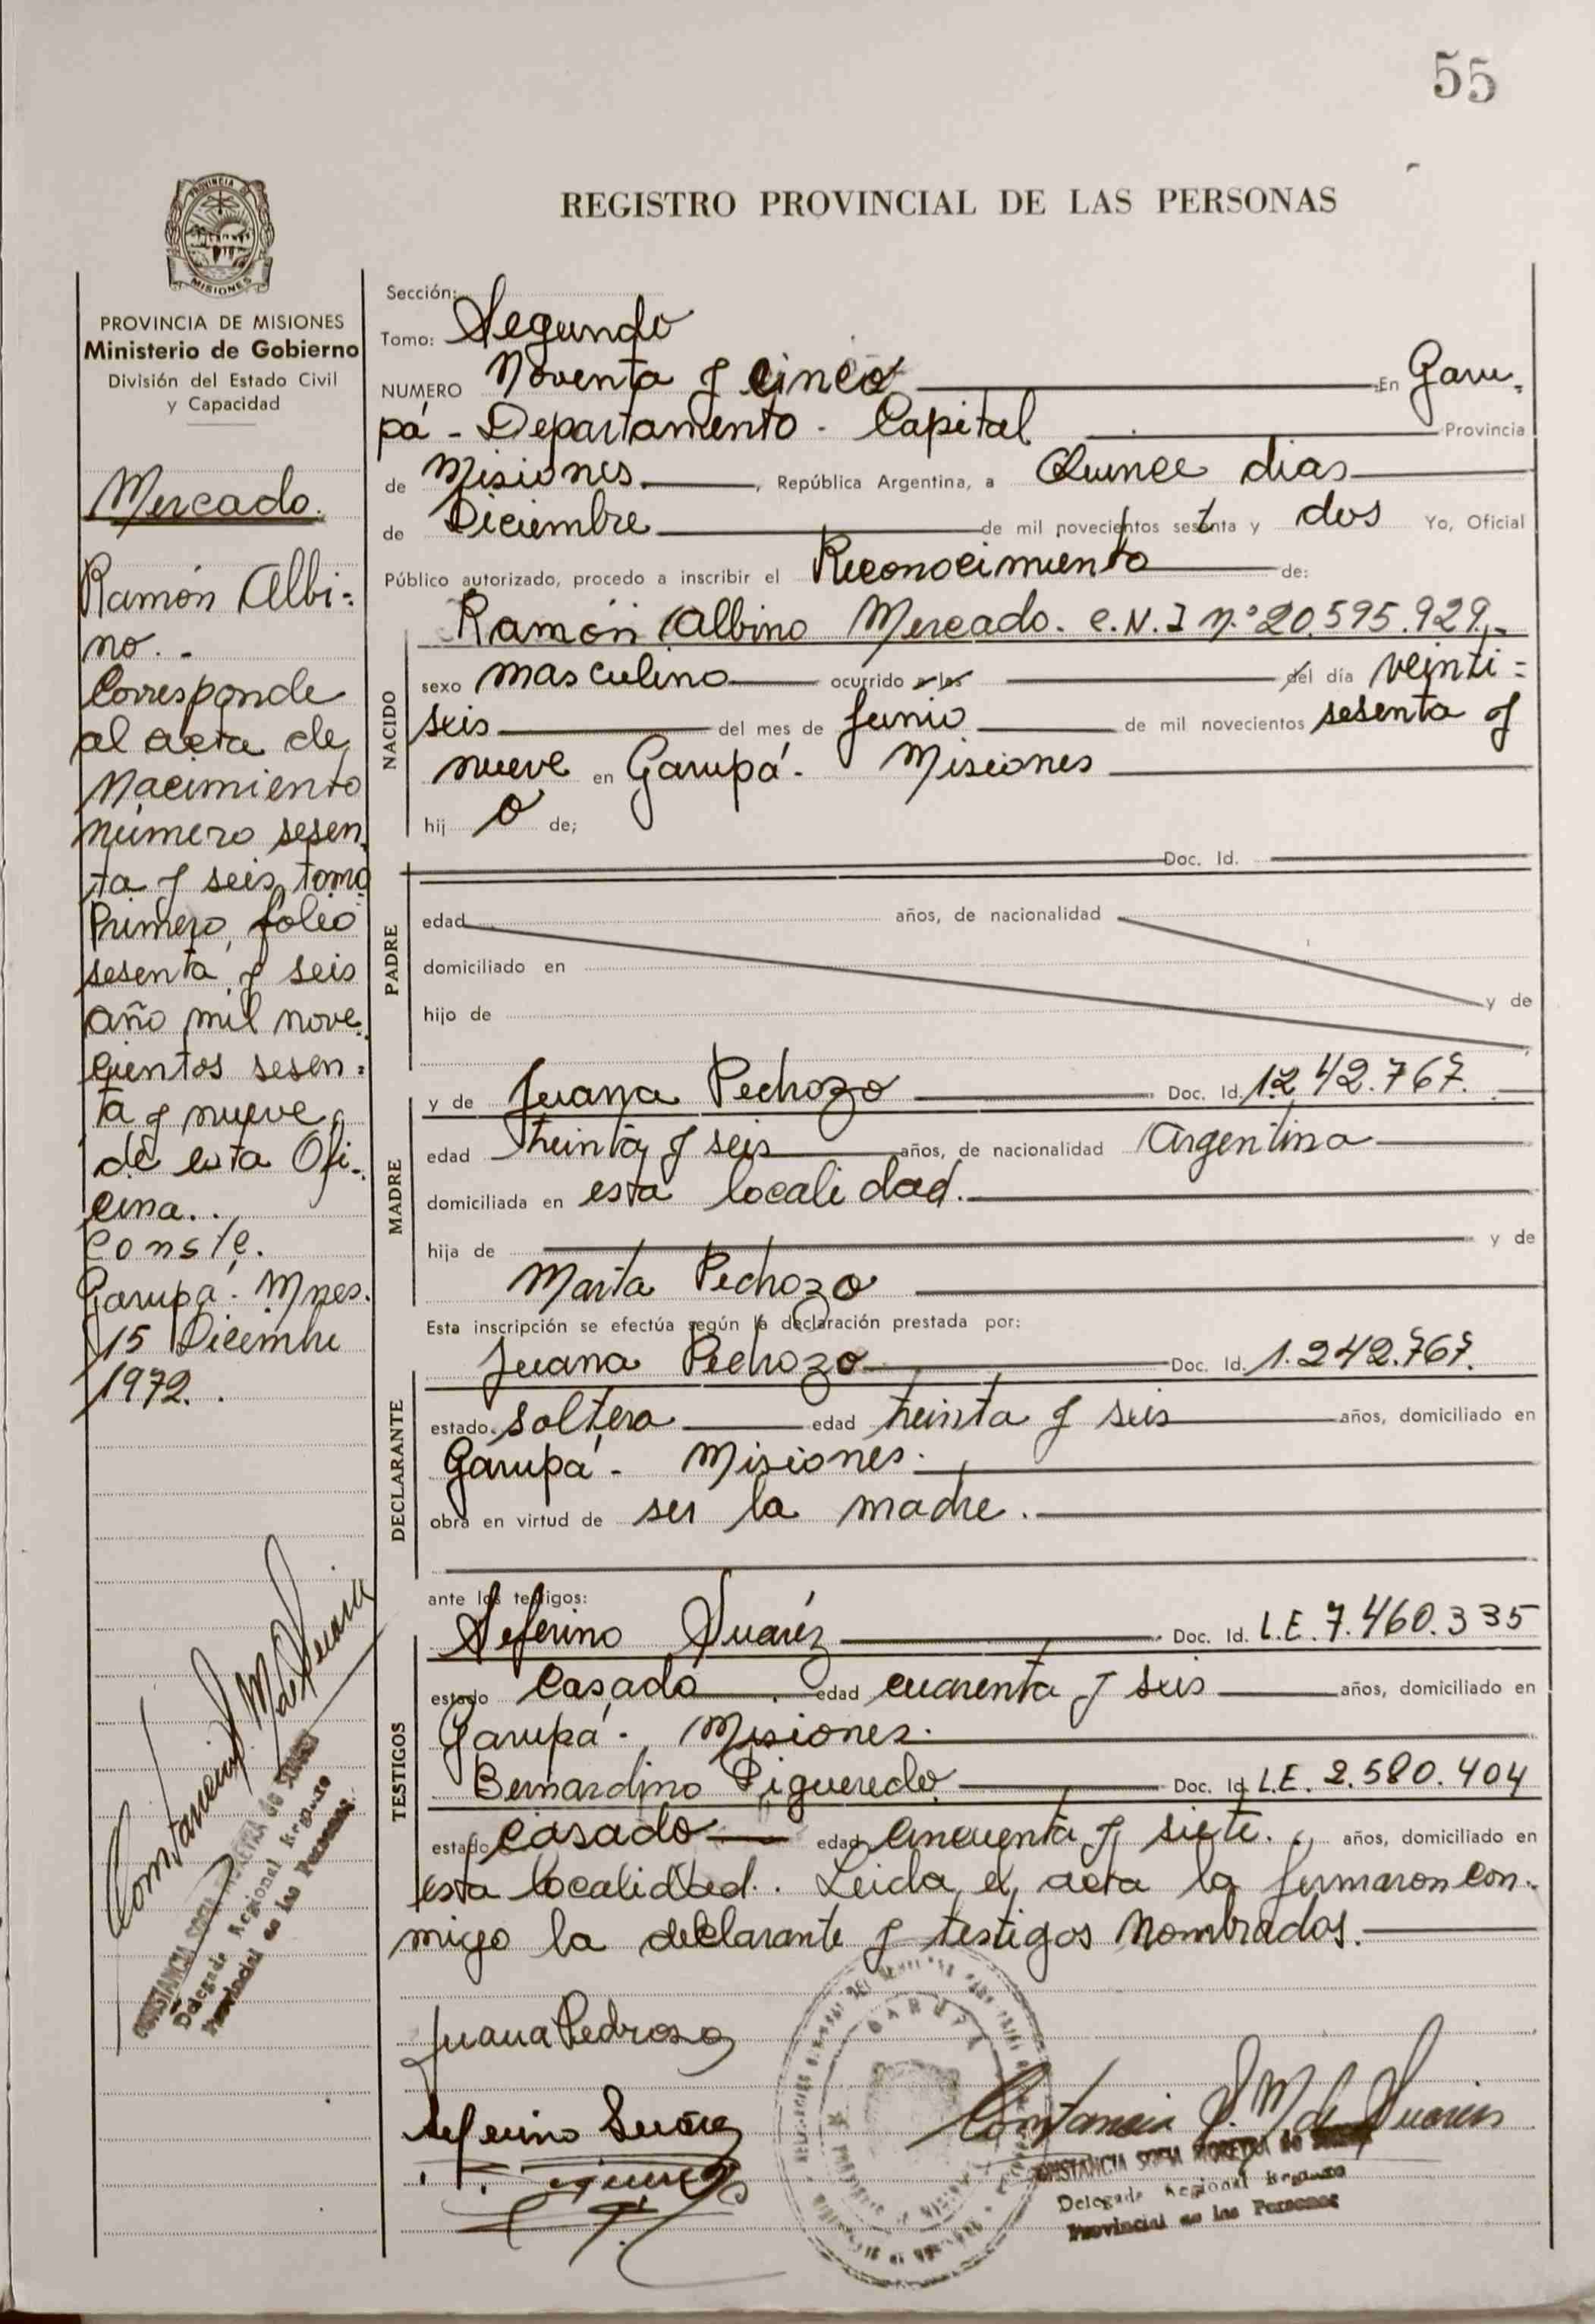 55
REGISTRO PROVINCIAL DE LAS PERSONAS
PROVINCIA DE
MISIONES
PROVINCIA DE MISIONES
Ministerio de Gobierno
División del Estado Civil
y Capacidad
Mercado.
Ramón Albi=
no. -
Corresponde
al acta de
Nacimiento
número sesen
ta y seis, tomo
Primero, folio
sesenta y seis
año mil nove
cientos sesen=
ta y nueve
de esta Ofi-
cina..
Conste.
Garupá. Mnes.
15 Diciembre
1972.
Sección:
Tomo: Segundo
NUMERO Noventa y cinco En Garu-
pá - Departamento - Capital Provincia
de Misiones. , República Argentina, a Quince dias
de Diciembre de mil novecientos setenta y dos Yo, Oficial
Público autorizado, procedo a inscribir el Reconocimiento de:
NACIDO
Ramón Albino Mercado. C.N.I n.º 20.595.929.-
sexo masculino ocurrido a las del día veinti=
seis del mes de Junio de mil novecientos sesenta y
nueve en Garupá. Misiones
hij o de;
PADRE
Doc. Id.
edad años, de nacionalidad
domiciliado en
hijo de y de
MADRE
y de Juana Pedrozo Doc. Id. 1.242.767.
edad treinta y seis años, de nacionalidad Argentina
domiciliada en esta localidad.
hija de y de
Marta Pedrozo
Esta inscripción se efectúa según la declaración prestada por:
DECLARANTE
Juana Pedrozo Doc. Id. 1.242.767.
estado soltera edad treinta y seis años, domiciliado en
Garupá - Misiones.
obra en virtud de ser la madre.
ante los testigos:
TESTIGOS
Seferino Suaréz Doc. Id. L.E. 7.460.335
estado Casado edad cuarenta y seis años, domiciliado en
Garupá. Misiones.
Bernardino Figueredo Doc. Id. L.E. 2.580.404
estado casado edad cincuenta y siete. años, domiciliado en
esta localidad. Leida el acta la firmaron con-
migo la declarante y testigos Nombrados.
Juana Pedrozo
Seferino Suárez
Constancia S. M. de Suarez
CONSTANCIA SOFIA MOREYRA de SUAREZ
Delegada Regional Registro
Provincial de las Personas
Constancia S. M. de Suarez
CONSTANCIA SOFIA MOREYRA de SUAREZ
Delegada Regional Registro
Provincial de las Personas
GARUPA